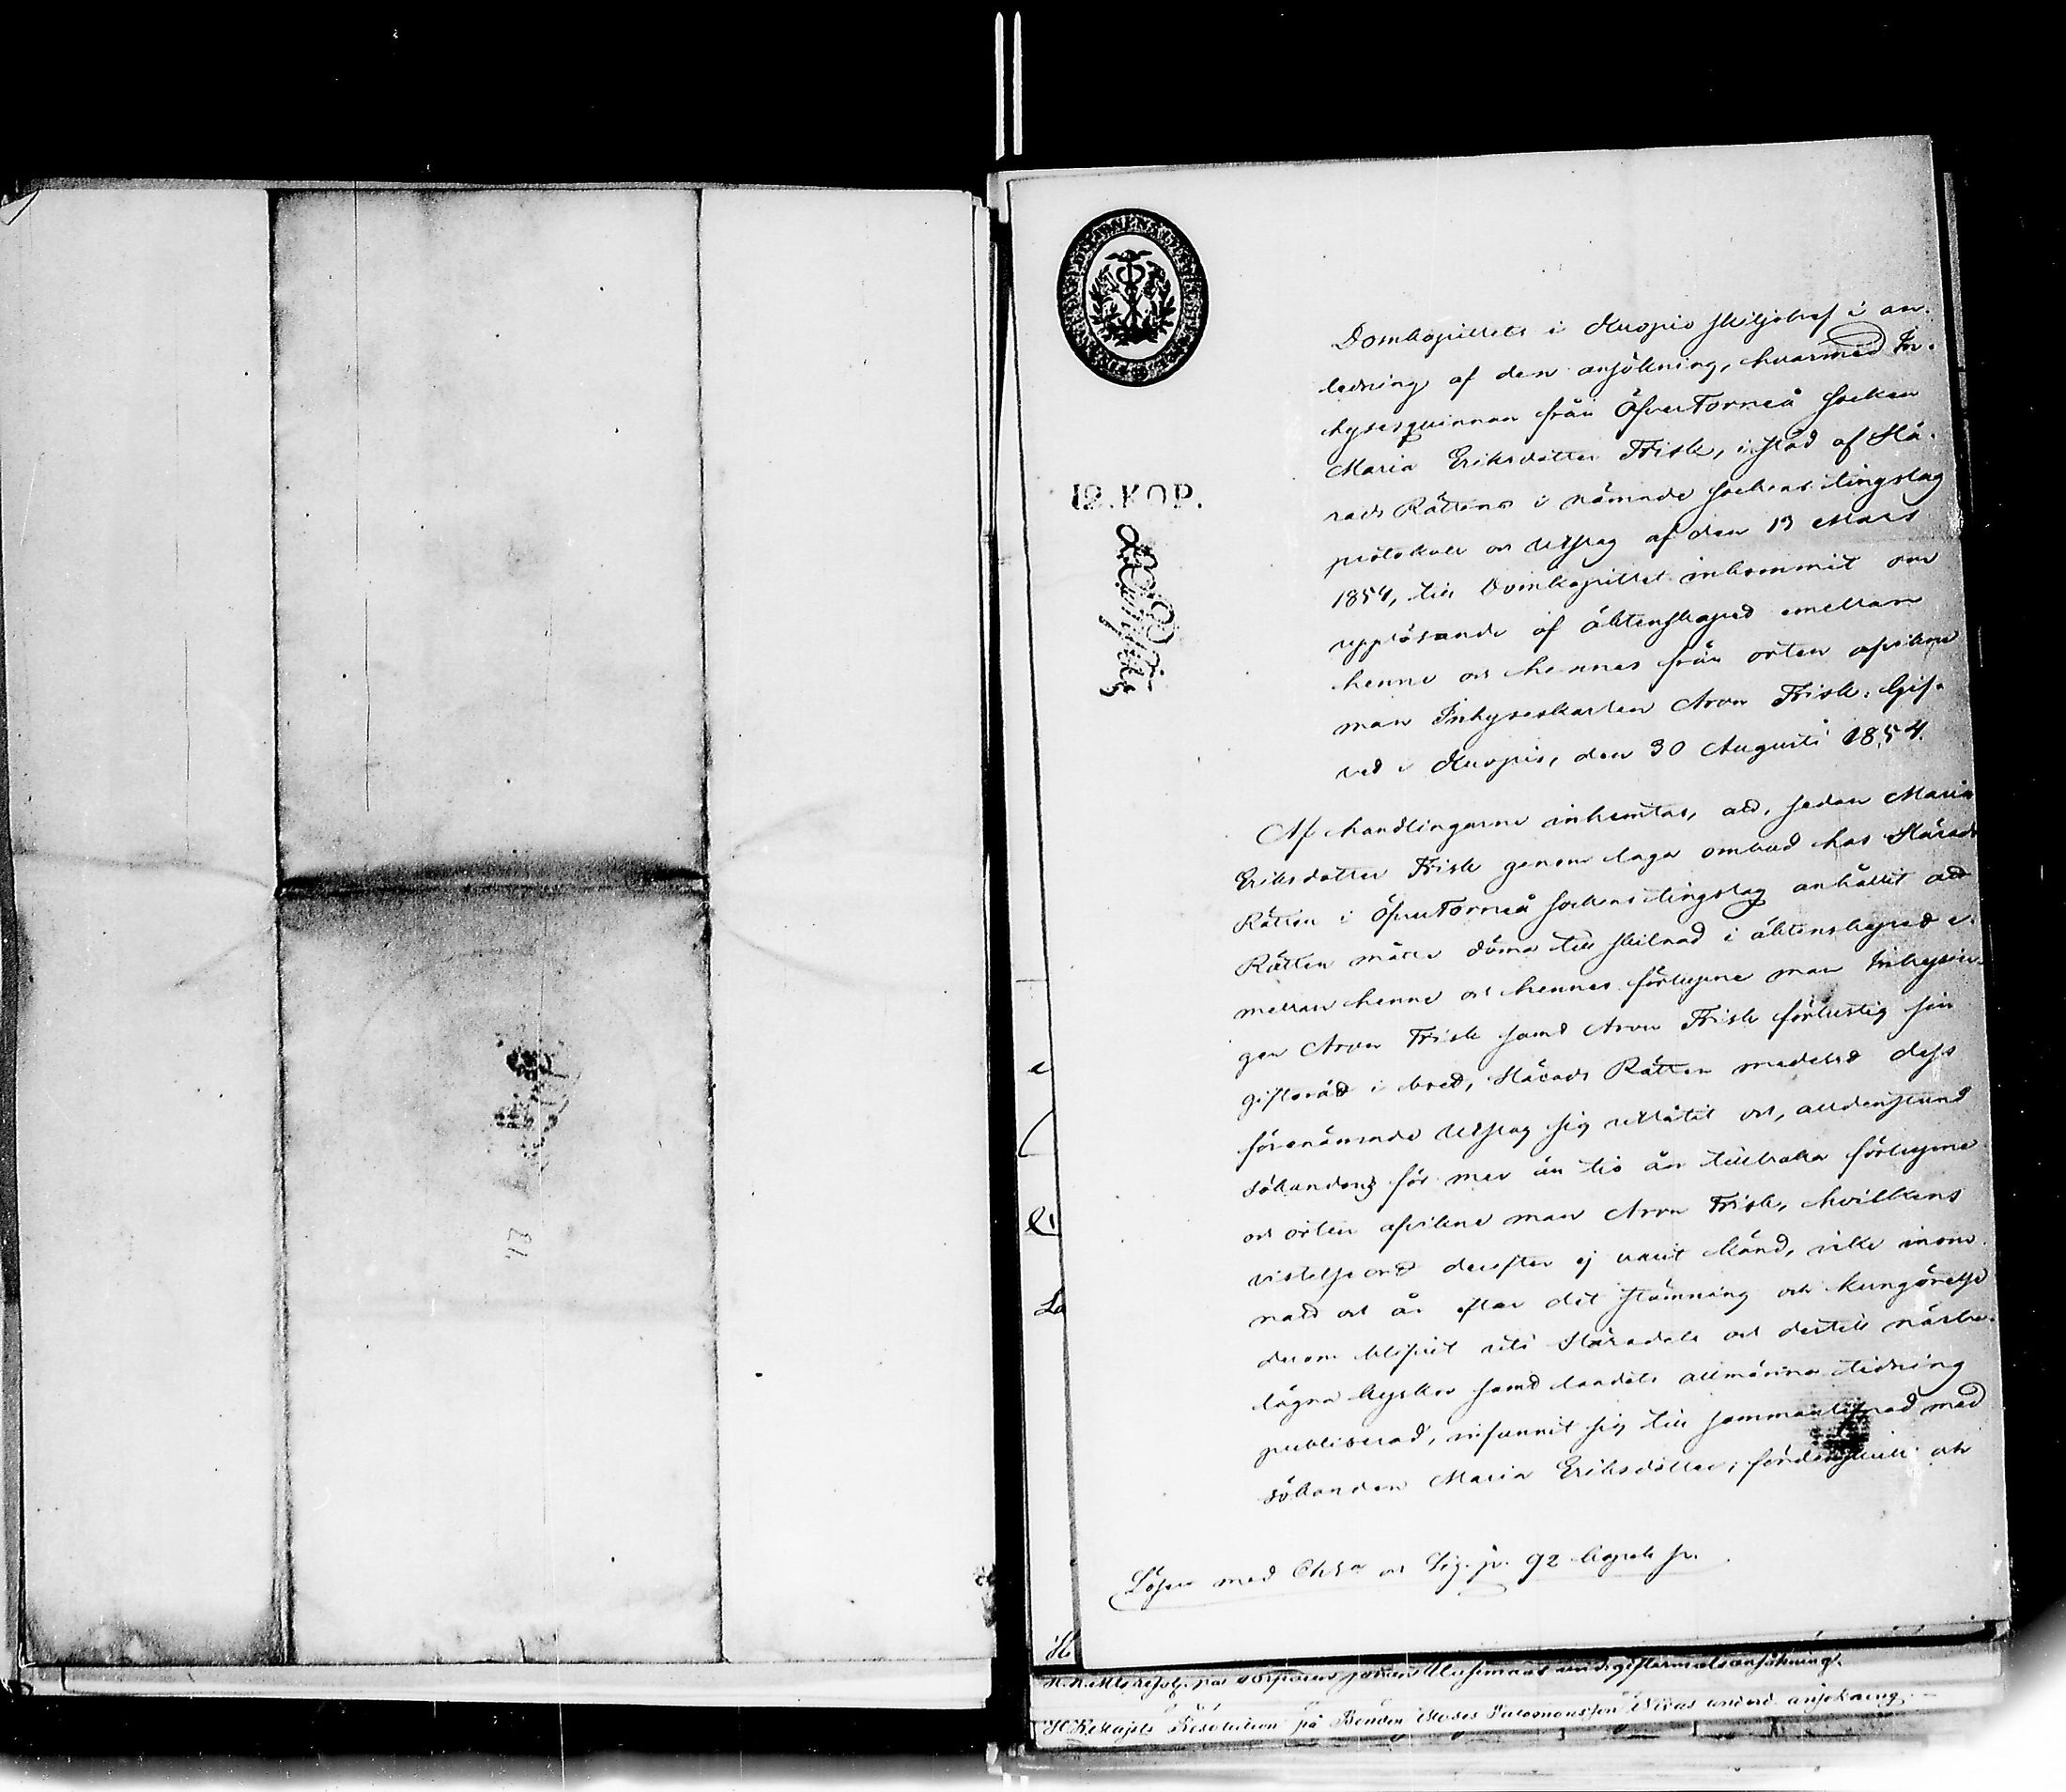 12. KOP.
Domkapitlets i Kuopio skiljobref i an-
ledning af den ansökning, hvarmed In-
hysesqvinnan från ÖfverTorneå socken
Maria Eriksdotter Frisk, i stöd af Hä-
rads Rättens i nämnde sockens tingslag
protokoll och utslag af den 13 Mars
1854, till Domkapitlet inkommit om
upplösande af äktenskaped emellan
henne och hennes från orten afvikne
man Inhyseskarlen Aron Frisk; Gif-
ved i Kuopio, den 30 Augusti 1854.
Af handlingarne inhemtas, att, sedan Maria
Eriksdotter Frisk genom laga ombud hos Härads
Rätten i ÖfverTorneå sockens tingslag anhållit att
Rätten måtte döma till skilnad i äktenskaped e-
mellan henne och hennes förlupne man Inhysin-
gen Aron Frisk samt Aron Frisk förlustig sin
giftorätt i boet, Härads Rätten medelst dess
förenämnde utslag sig utlåtit och, alldenstund
sökandens för mer än tio år tillbaka förlupne
och orten afvikne man Aron Frisk, hvilkens
vistelse ort derefter ej varit känd, icke inom
natt och år efter det stämning och kungörelse
derom blifvit uti Häradets och dertill närbe-
lägna kyrkor samt landets allmänna tidning
publicerad, infunnit sig till sammanlefnad med
sökanden Maria Eriksdotter; fördenskull och
Lösen med Ch:Sa och Sig. p. 92 kopek sr.
H. K. Majsts Resolution på Bonden Moses Salomonsson Nivas underd. ansökning